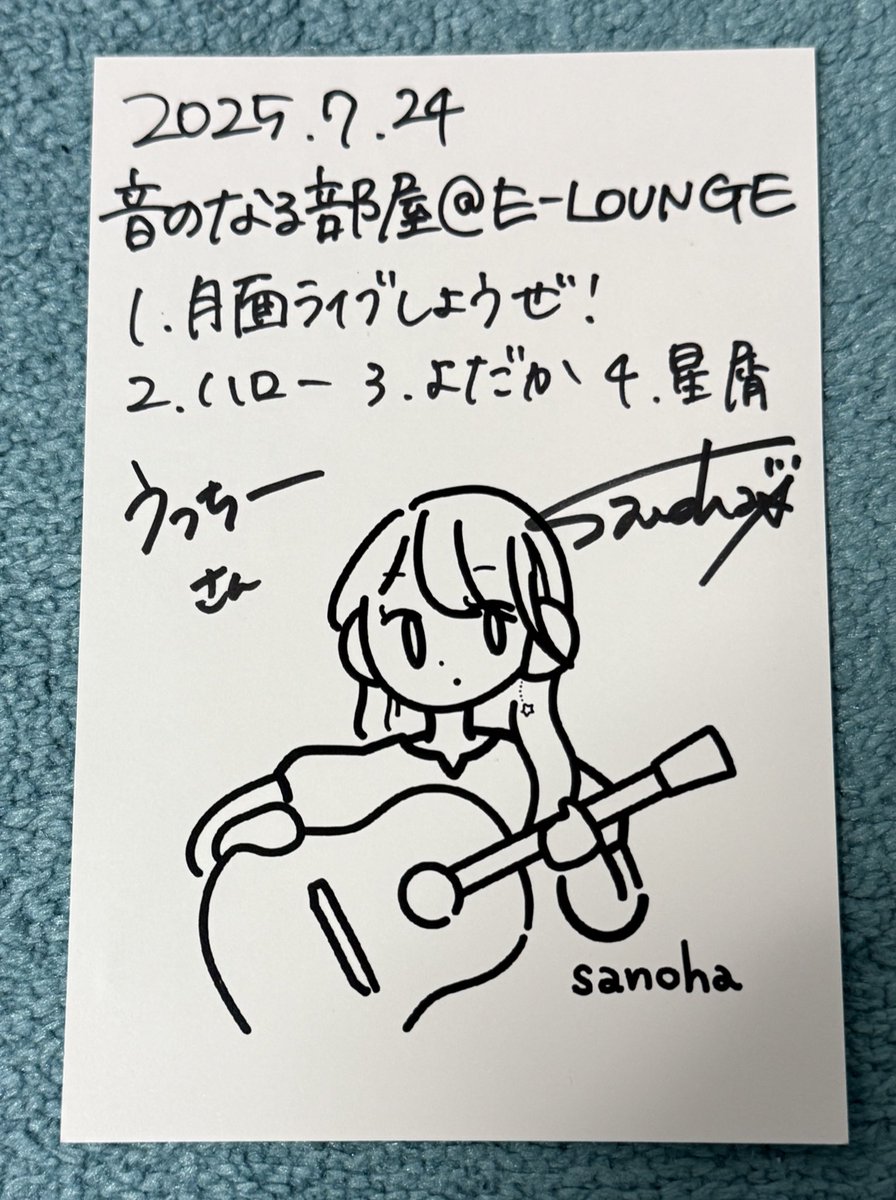 2025.7.24
音のなる部屋@E-LOUNGE
1.月面ライブしようぜ!
2.ハロー 3.よだか 4.星屑
うっちー
さん
sanoha
sanoha